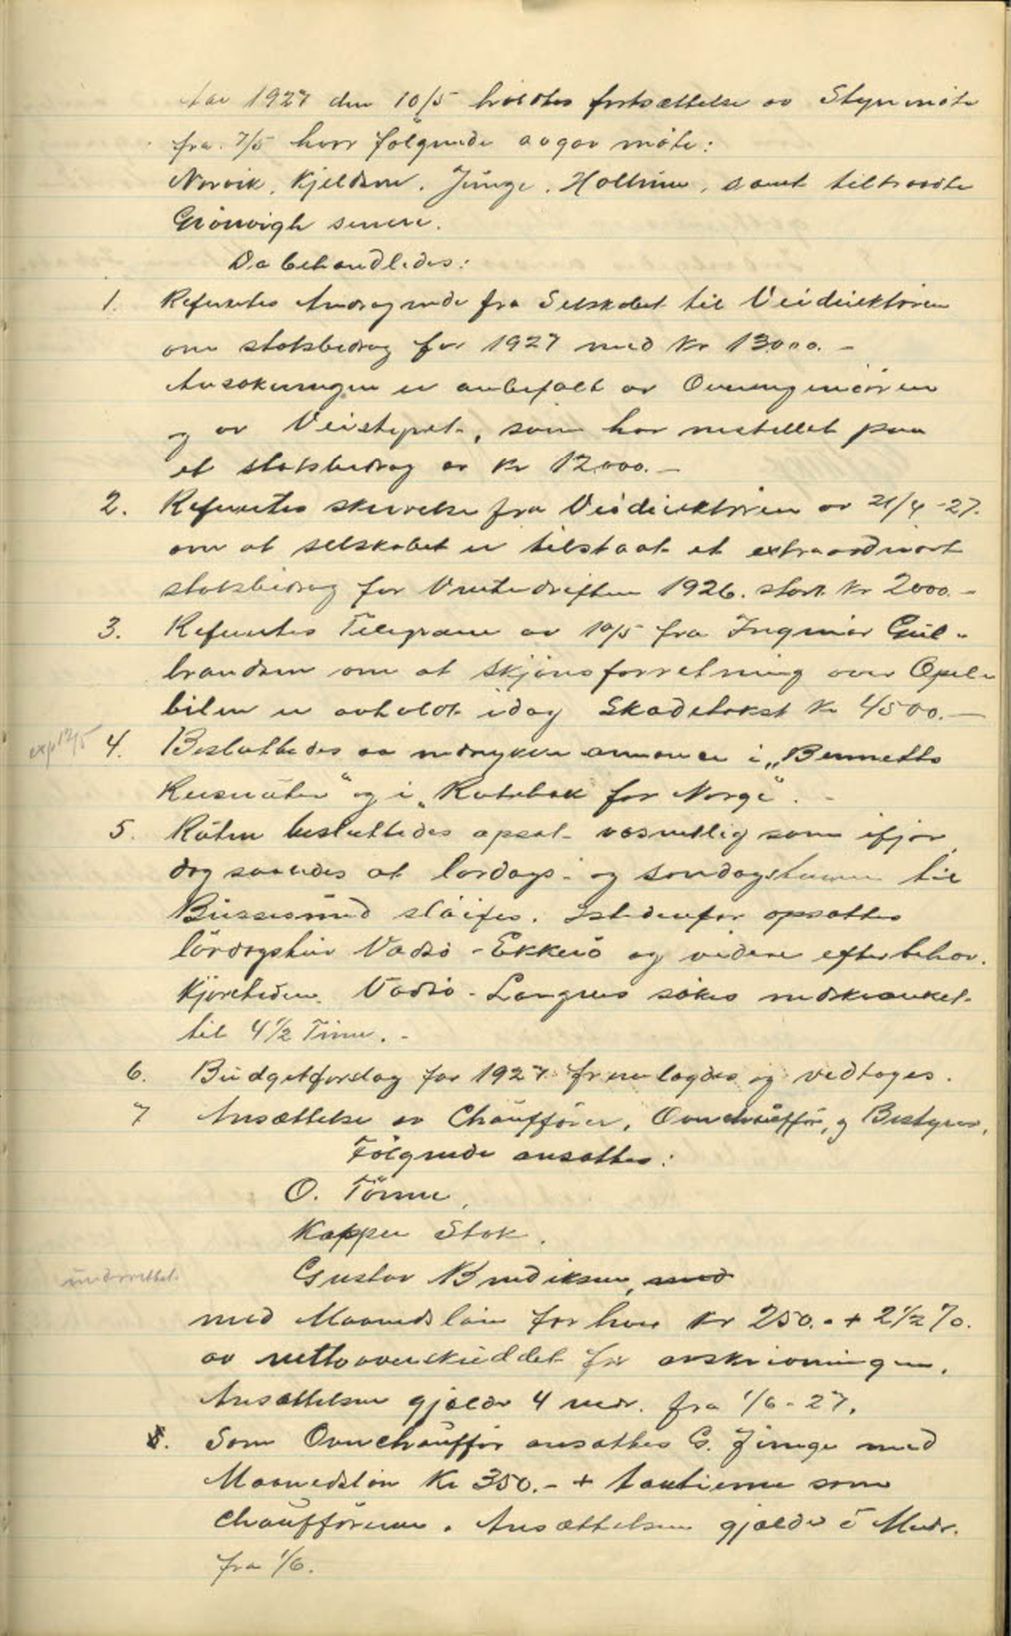 Aar 1927 den 10/5 holdtes fortsættelse av Styremöte
fra 7/5 hvor følgende avgav möte:
Norvik, Kjeldsen, Junge, Holthine, samt tiltraadte
Grönvigh senere.
Da behandledes:
1. Refertes Andragende fra Selskabet til Veidirektören
om statsbidrag for 1927 med Kr 13000.-
Ansökningen er anbefalt av Overingeniören
og av Veistyret, som har indstillet paa
et statsbidrag av Kr 12000.-
2. Refertes skrivelse fra Veidirektören av 21/4-27.
om at selskabet er tilstaat et extraordinört
statsbidrag for Vinterdriften 1926. stort Kr 2000.-
3. Refertes Telegram av 10/5 fra Ingvar Gul-
brandsen om at skjönsforretning over Opel-
bilen er avholdt idag Skadetakst Kr 4500.-
exp 12/5 4. Besluttedes aa indrykke annonce i „Bennetts
Reiseruter" og i „Rutebok for Norge".-
5. Ruten besluttedes opsat væsentlig som ifjor,
dog saaledes at lördags- og söndagsturene til
Bussesund slöifes. Istedenfor opsattes
lördagstur Vadsö - Ekkerö og videre efter behov.
Kjöretiden Vadsö - Langnes sökes indskrænket
til 4 1/2 Time.-
6. Budgetforslag for 1927 fremlagdes og vedtoges.
7 Ansættelse av Chauffører, Overchauffør, og Bestyrer.
Følgende ansattes:
O. Tönne,
Kasper Stok.
underrettet Gustav Bendiksen, med
med Maanedslön for hver Kr 250.- + 2 1/2 %.
av nettooverskuddet før avskrivningen.
Ansættelsen gjælder 4 mdr. fra 1/6-27.
8. Som Overchauffør ansattes G. Junge med
Maanedslön Kr 350.- + tantieme som
Chaufførerne. Ansættelsen gjælder 5 Mndr.
fra 1/6.